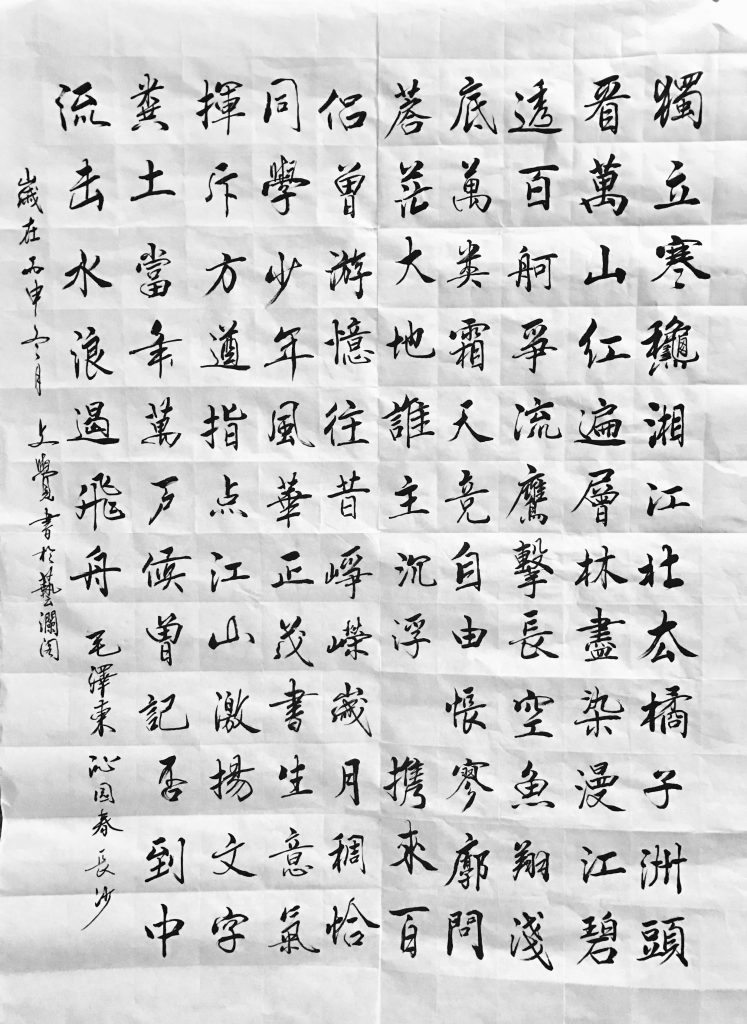 獨立寒龝湘江北厺橘子洲頭
看萬山红遍層林盡染漫江碧
透百舸爭流鷹擊長空魚翔淺
底萬类霜天竞自由悵寥廓問
蒼茫大地誰主沉浮 携來百
侣曾游憶往昔崢嶸歲月稠恰
同學少年風華正茂書生意氣
揮斥方遒指点江山激揚文字
糞土當年萬户侯曾記否到中
流击水浪遏飛舟 毛澤東 沁园春 長沙
歲在丙申冬月 文覺書於藝瀾阁